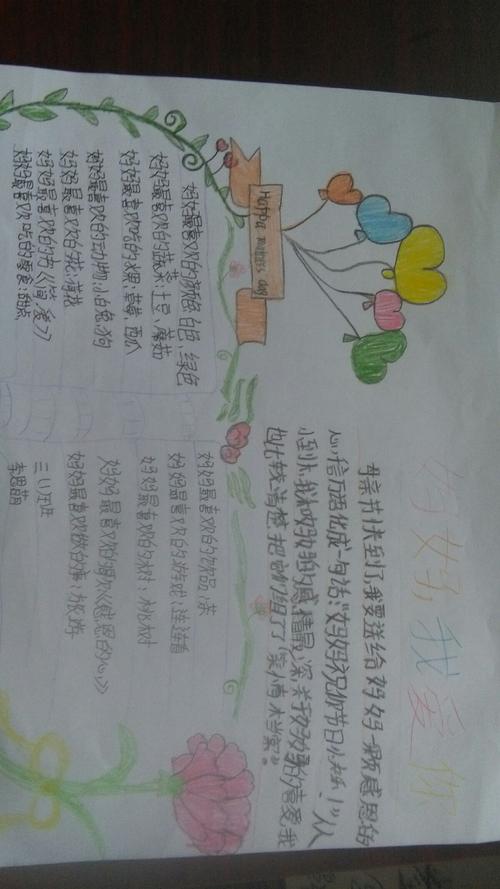 妈妈,我爱你
Happa mothess day
母亲节快来到了,我要送给妈妈一颗感恩的
心,千言万语化成一句话:“妈妈祝你节日快乐!”从
小到大,我和妈妈的感情最深,关于妈妈的喜爱,我
也比较清楚,把它们组了了“亲情档案”。
妈妈最喜欢的颜色:白色、绿色
妈妈最喜欢的蔬菜:土豆、蘑菇
妈妈最喜欢吃的水果:草莓、西瓜
妈妈最喜欢的动物:小白兔、狗
妈妈最喜欢的花:荷花
妈妈最喜欢的书:《人间,爱》
妈妈最喜欢吃的零食:甜点
妈妈最喜欢的饮品:茶
妈妈最喜欢的游戏:连连看
妈妈最喜欢的树:桃树
妈妈最喜欢的歌:《感恩的心》
妈妈最喜欢做的事:旅游
三(1)班
李思